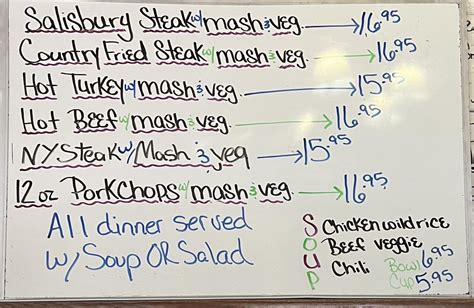 Salisbury Steak w/ mash & veg. → 16.95
Country Fried Steak w/ mash & veg. → 16.95
Hot Turkey w/ mash & veg. → 15.95
Hot Beef w/ mash & veg. → 16.95
NY Steak w/ Mash & veg → 15.95
12 oz Pork Chops w/ mash & veg. → 16.95
All dinner served
w/ Soup OR Salad
SOUP
Chicken wild rice
Beef veggie
Chili
Bowl 6.95
Cup 5.95